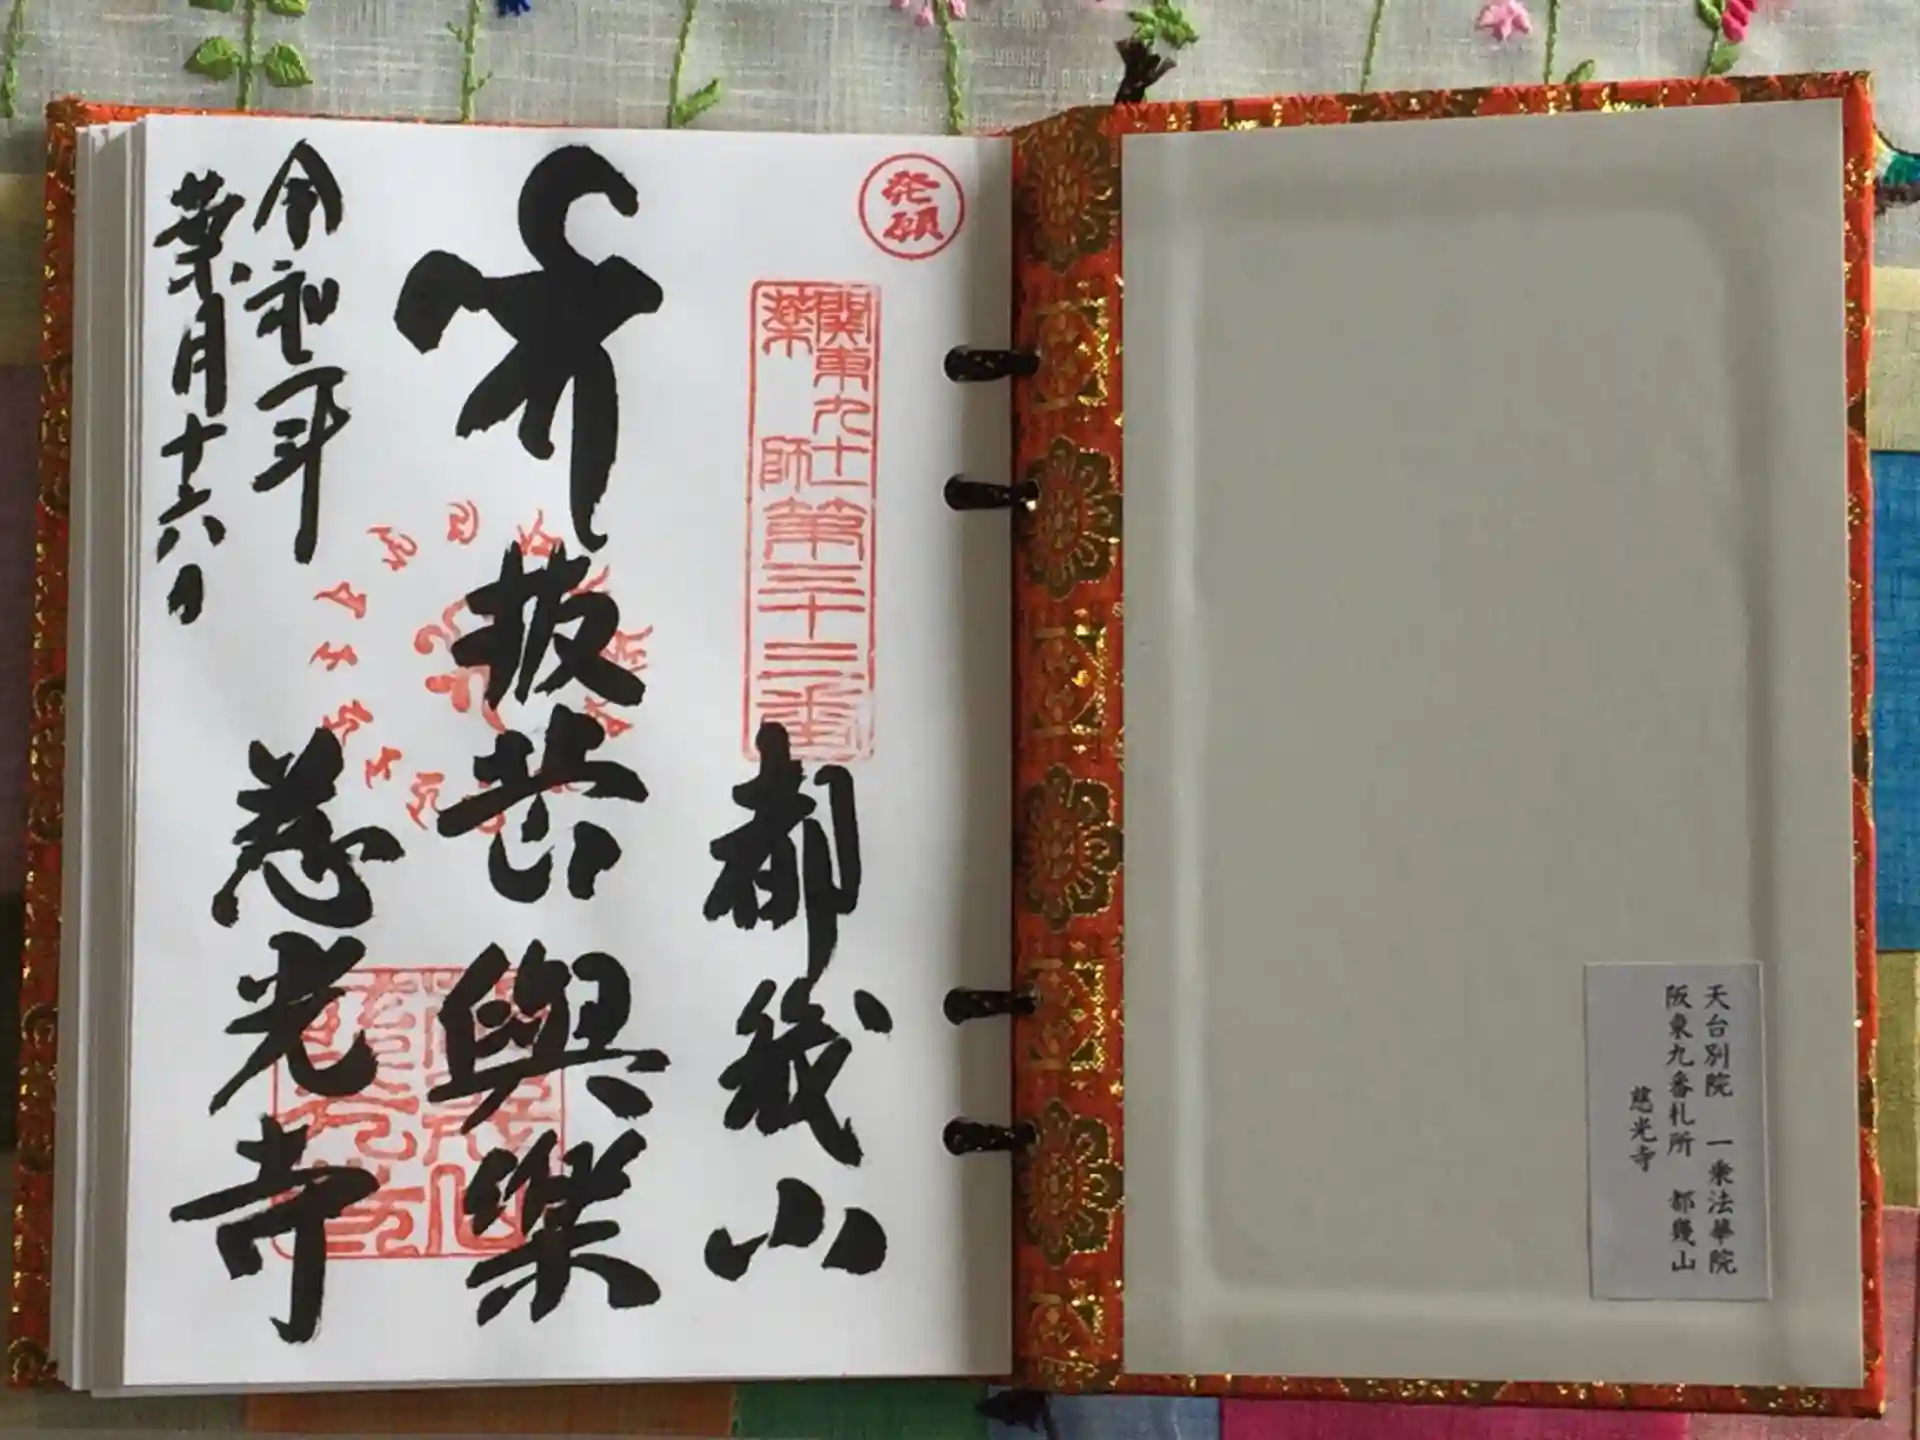 天台別院 一乗法華院
阪東九番札所 都幾山
慈光寺
発願
関東九十一
薬師
第三十二番
都幾山
抜苦與樂
慈光寺
令和二年
葉月十六日